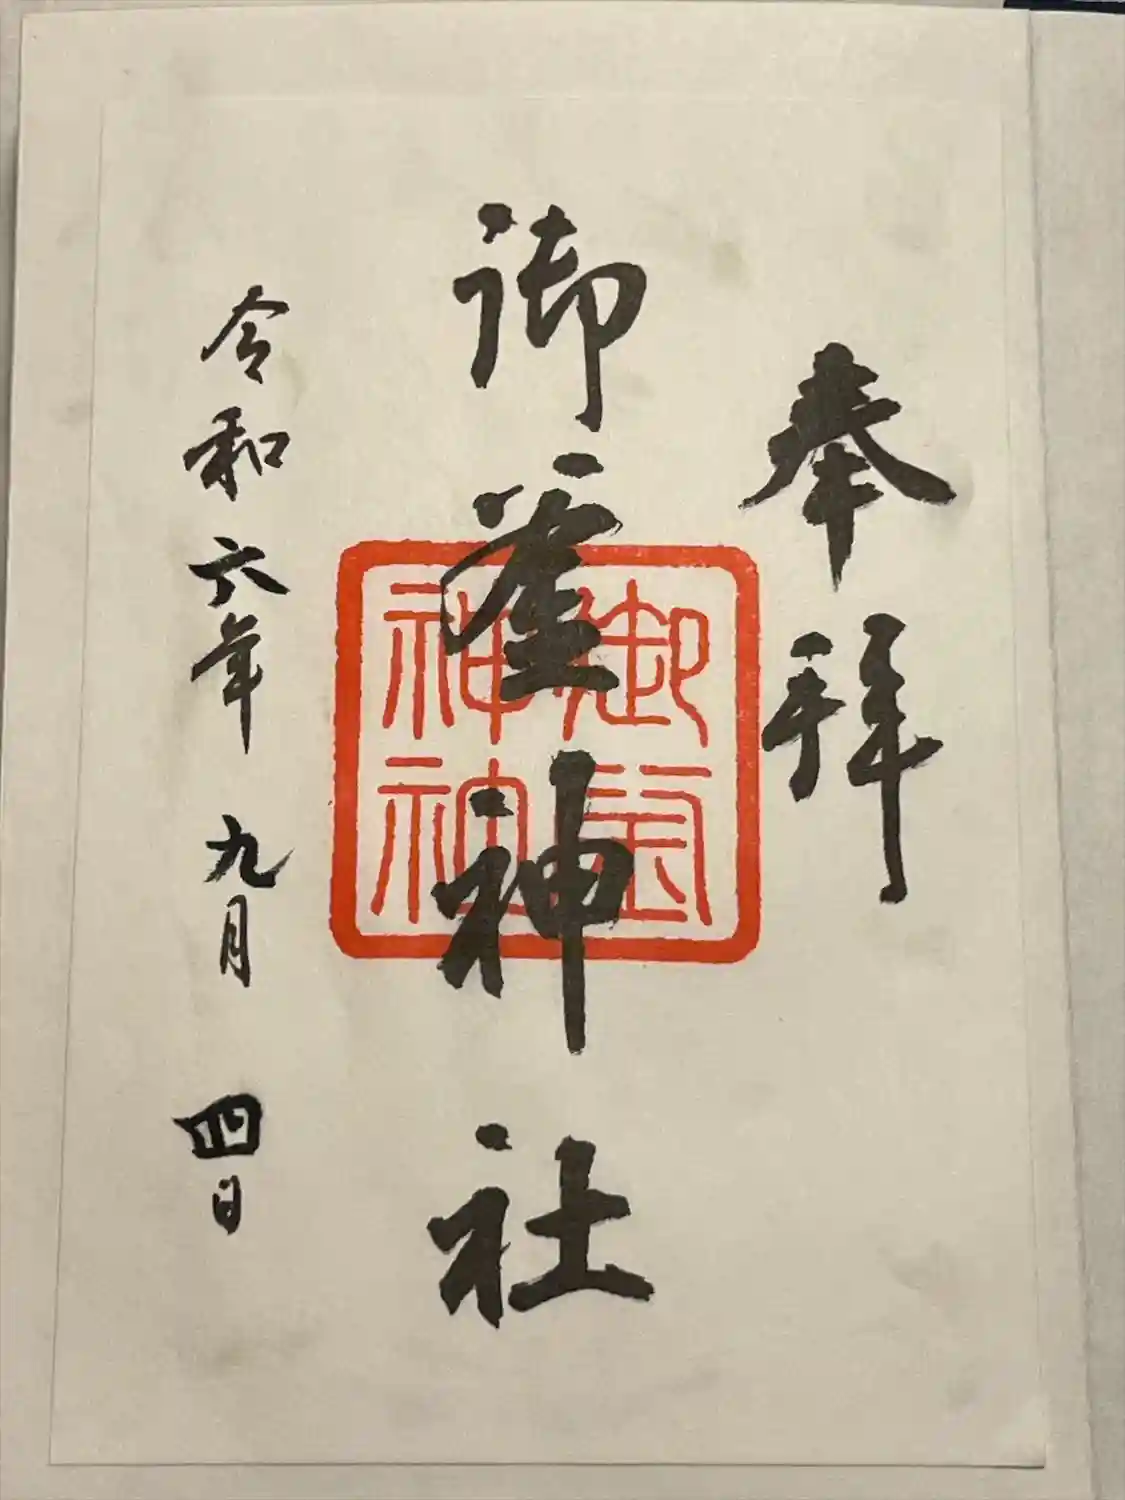 奉拝
御釜神社
令和六年九月四日
御釜
神社